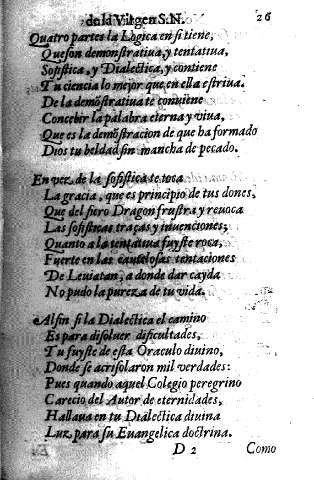 de la Virgen S.N. 26
Quatro partes la Logica en si tiene,
Que son demonstratiua, y tentatiua,
Sofistica, y Dialectica, y contiene
Tu ciencia lo mejor que en ella estriua.
De la demõstratiua te conuiene
Concebir la palabra eterna y viua,
Que es la demõstracion de que ha formado
Dios tu beldad sin mancha de pecado.
En vez de la sofistica te toca
La gracia, que es principio de tus dones,
Que del fiero Dragon frustra y reuoca
Las sofisticas traças y inuenciones;
Quanto a la tentatiua fuyste roca,
Fuerte en las cautelosas tentaciones
De Leuiatan, a donde dar cayda
No pudo la pureza de tu vida.
Alfin si la Dialectica el camino
Es para disoluer dificultades,
Tu fuyste de esta Oraculo diuino,
Donde se acrisolaron mil verdades:
Pues quando aquel Colegio peregrino
Carecio del Autor de eternidades,
Hallaua en tu Dialectica diuina
Luz para su Euangelica doctrina.
D 2 Como